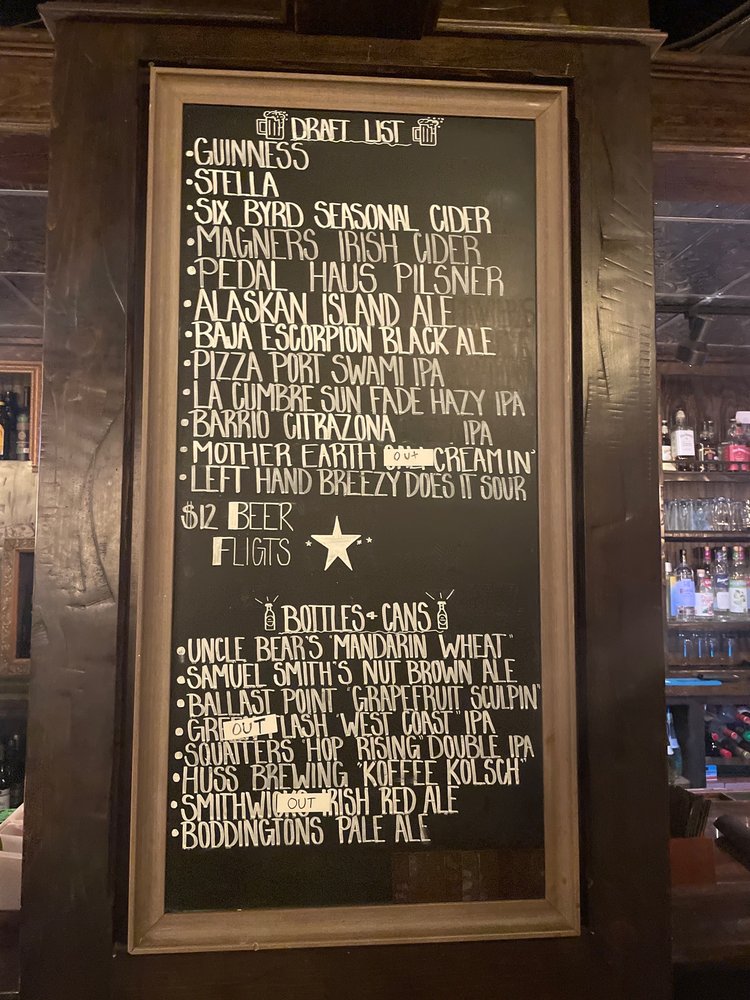 DRAFT LIST
•GUINNESS
•STELLA
•SIX BYRD SEASONAL CIDER
•MAGNERS IRISH CIDER
•PEDAL HAUS PILSNER
•ALASKAN ISLAND ALE
•BAJA ESCORPION BLACK ALE
•PIZZA PORT SWAMI IPA
•LA CUMBRE SUN FADE HAZY IPA
•BARRIO CITRAZONA IPA
•MOTHER EARTH OUT CREAMIN'
•LEFT HAND BREEZY DOES IT SOUR
$12 BEER
FLIGTS
BOTTLES + CANS
•UNCLE BEAR'S "MANDARIN WHEAT"
•SAMUEL SMITH'S NUT BROWN ALE
•BALLAST POINT "GRAPEFRUIT SCULPIN"
•OUT "WEST COAST" IPA
•SQUATTERS "HOP RISING" DOUBLE IPA
•HUSS BREWING "KOFFEE KOLSCH"
•SMITHWICKS OUT IRISH RED ALE
•BODDINGTONS PALE ALE